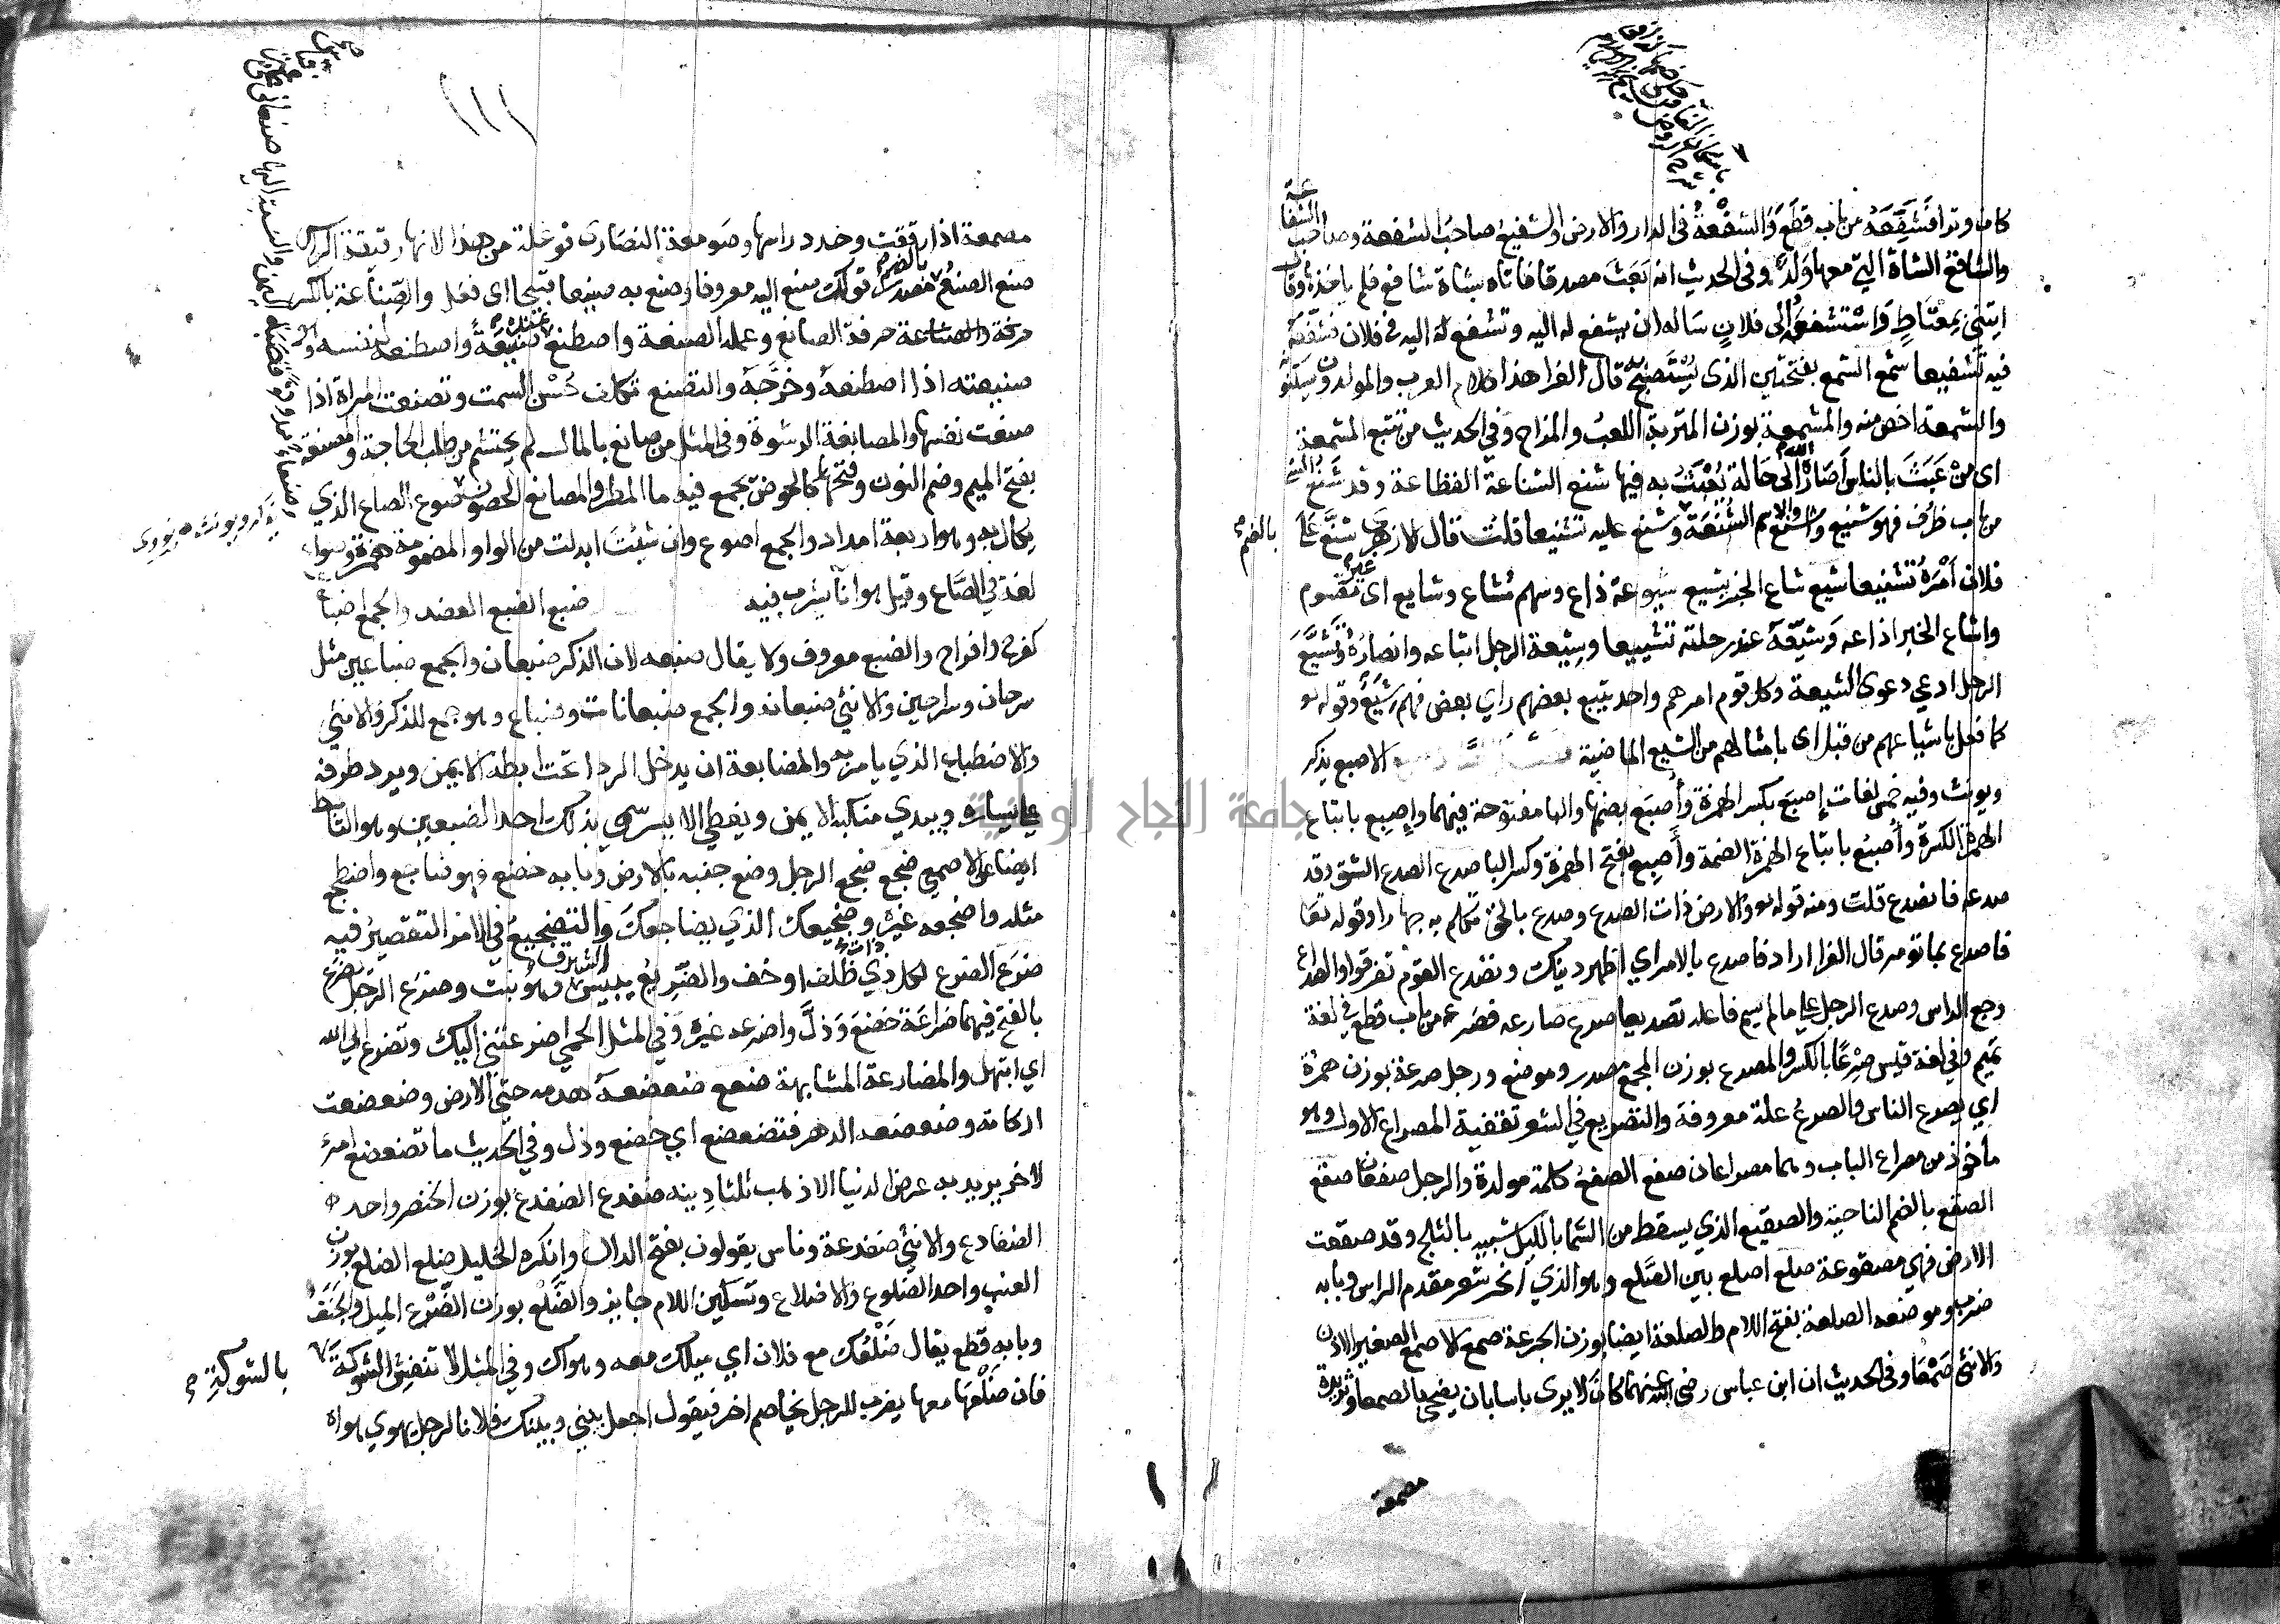 كان وترا فشفعه من باب قطع والشفعة في الدار والارض والشفيع صاحب الشفعة وصاحب الشفاعة
والشافع الشاة التي معها ولد وفي الحديث انه بعث مصدقا فاتاه بشاة شافع فلم ياخذها وقال
ايتني بمعتاط واستشفعه الى فلان ساله ان يشفع له اليه وتشفع له اليه في فلان فشفعه
فيه تشفيعا شمع الشمع بفتحتين الذي يستصبح به قال الفرا هذا كلام العرب والمولدون يسكنونه
والشمعة اخص منه والمشمعة بوزن المتربة اللعب والمزاح وفي الحديث من تتبع المشمعة
اى من عبث بالناس اصاره الله الى حالة يعبث به فيها شنع الشناعة الفظاعة وقد شنع الشئ
من باب ظرف فهو شنيع والاسم الشنعة وشنع عليه تشنيعا قلت قال الازهرى شنع على
بالضم
فلان امره تشنيعا شيع شاع الخبر يشيع شيوعة ذاع وسهم مشاع وشايع اى غير مقسوم
واشاع الخبر اذاعه وشيعه عند رحلته تشييعا وشيعة الرجل اتباعه وانصاره وتشيع
الرجل ادعي دعوى الشيعة وكل قوم امرهم واحد يتبع بعضهم راي بعض فهم شيع وقوله تع
كما فعل باشياعهم من قبل اى بامثالهم من الشيع الماضية الاصبع يذكر
ويونث وفيه خمس لغات إصبع بكسر الهمزة وأصبع بضمها والبا مفتوحة فيهما وإصبع باتباع
الهمزة الكسرة وأصبع باتباع الهمزة الضمة وأصبع بفتح الهمزة وكسر البا صدع الصدع الشق وقد
صدعه فانصدع قلت ومنه قوله تع والارض ذات الصدع وصدع بالحق تكلم به جهارا وقوله تعا
فاصدع بما تومر قال الفرا اراد فاصدع بالامر اي اظهر دينك وتصدع القوم تفرقوا والصداع
وجع الراس وصدع الرجل على ما لم يسم فاعله تصديعا صرع صارعه فصرعه من باب قطع في لغة
تميم وفي لغة قيس صرعا بالكسر والمصرع بوزن المجمع مصدر وموضع ورجل صرعة بوزن همزة
اي يصرع الناس والصرع علة معروفة والتصريع في الشعر تقفية المصراع الاول وهو
مأخوذ من مصراع الباب وهما مصراعان صفع الصفع كلمة مولدة والرجل صفعان صقع
الصقع بالضم الناحية والصقيع الذي يسقط من السما بالليل شبيه بالثلج وقد صقعت
الارض فهي مصقوعة صلع اصلع بين الصلع وهو الذي انحسر شعر مقدم الراس وبابه
ضرب وموضعه الصلعة بفتح اللام والصلعة ايضا بوزن الجرعة صمع الاصمع الصغير الاذن
والانثى صمعا وفي الحديث ان ابن عباس رضى الله عنهما كان لا يرى باسا بان يضحي بالصمعا وثريدة
مصمعة
١١١
مصمعة اذا رققت وحدد راسها وصومعة النصارى فوعلة من هذا لانها دقيقة الراس
صنع الصنع بالضم مصدر قولك صنع اليه معروفا وصنع به صنيعا قبيحا اى فعل والصناعة بالكسر
حرفة الصانع وعمله الصنعة واصطنع عنده صنيعة واصطنعه لنفسه وهو
صنيعته اذا اصطنعه وخرجه والتصنع تكلف حسن السمت وتصنعت المراة اذا
صنعت نفسها والمصانعة الرشوة وفي المثل من صانع بالمال لم يحتشم من طلب الحاجة والمصنعة
بفتح الميم وضم النون وفتحها كالحوض يجمع فيه ما المطر والمصانع الحصون صوع الصاع الذي
يكال به وهو اربعة امداد والجمع اصوع وان شئت ابدلت من الواو المضمومة همزة وصواع
لغة في الصاع وقيل هو انا يشرب فيه ضبع الضبع العضد والجمع اضباع
كفرخ وافراخ والضبع معروف ولا يقال ضبعه لان الذكر ضبعان والجمع ضباعين مثل
سرحان وسراحين والانثى ضبعانه والجمع ضبعانات وضباع وهو جمع للذكر والانثى
والاضطباع الذي يامر به والمضابعة ان يدخل الردا تحت ابطه الايمن ويرد طرفه
على يساره ويبدي منكبه الايمن ويغطي الايسر سمي بذلك احد الضبعين وهو التابط
ايضا عن الاصمعي ضجع ضجع الرجل وضع جنبه بالارض وبابه خضع فهو ضاجع واضطجع
مثله واضجعه غيره وضجيعك الذي يضاجعك والتضجيع في الامر التقصير فيه
ضرع الضرع لكل ذات ظلف او خف والضريع يبيس الشبرق وهو نبت وضرع الرجل يضرع
بالفتح فيهما ضراعة خضع وذل واضرعه غيره وفي المثل الحمى اضرعتني اليك وتضرع الي الله
اي ابتهل والمضارعة المشابهة ضعع ضعضعه هدمه حتى الارض وضعضعت
اركانه وضعضعه الدهر فتضعضع اي خضع وذل وفي الحديث ما تضعضع امرؤ
لاخر يريد به عرض الدنيا الا ذهب ثلثا دينه ضفدع الضفدع بوزن الخنصر واحد
الضفادع والانثى ضفدعة وناس يقولون بفتح الدال وانكره الخليل ضلع الضلع بوزن
العنب واحد الضلوع والاضلاع وتسكين اللام جايز والضلع بوزن الضرع الميل والجنف
وبابه قطع يقال ضلعك مع فلان اي ميلك معه وهواك وفي المثل لا تنقش الشوكة
بالشوكة
فان ضلعها معها يضرب للرجل يخاصم اخر فيقول اجعل بيني وبينك فلانا لرجل يهوي هواه
جامعة النجاح الوطنية